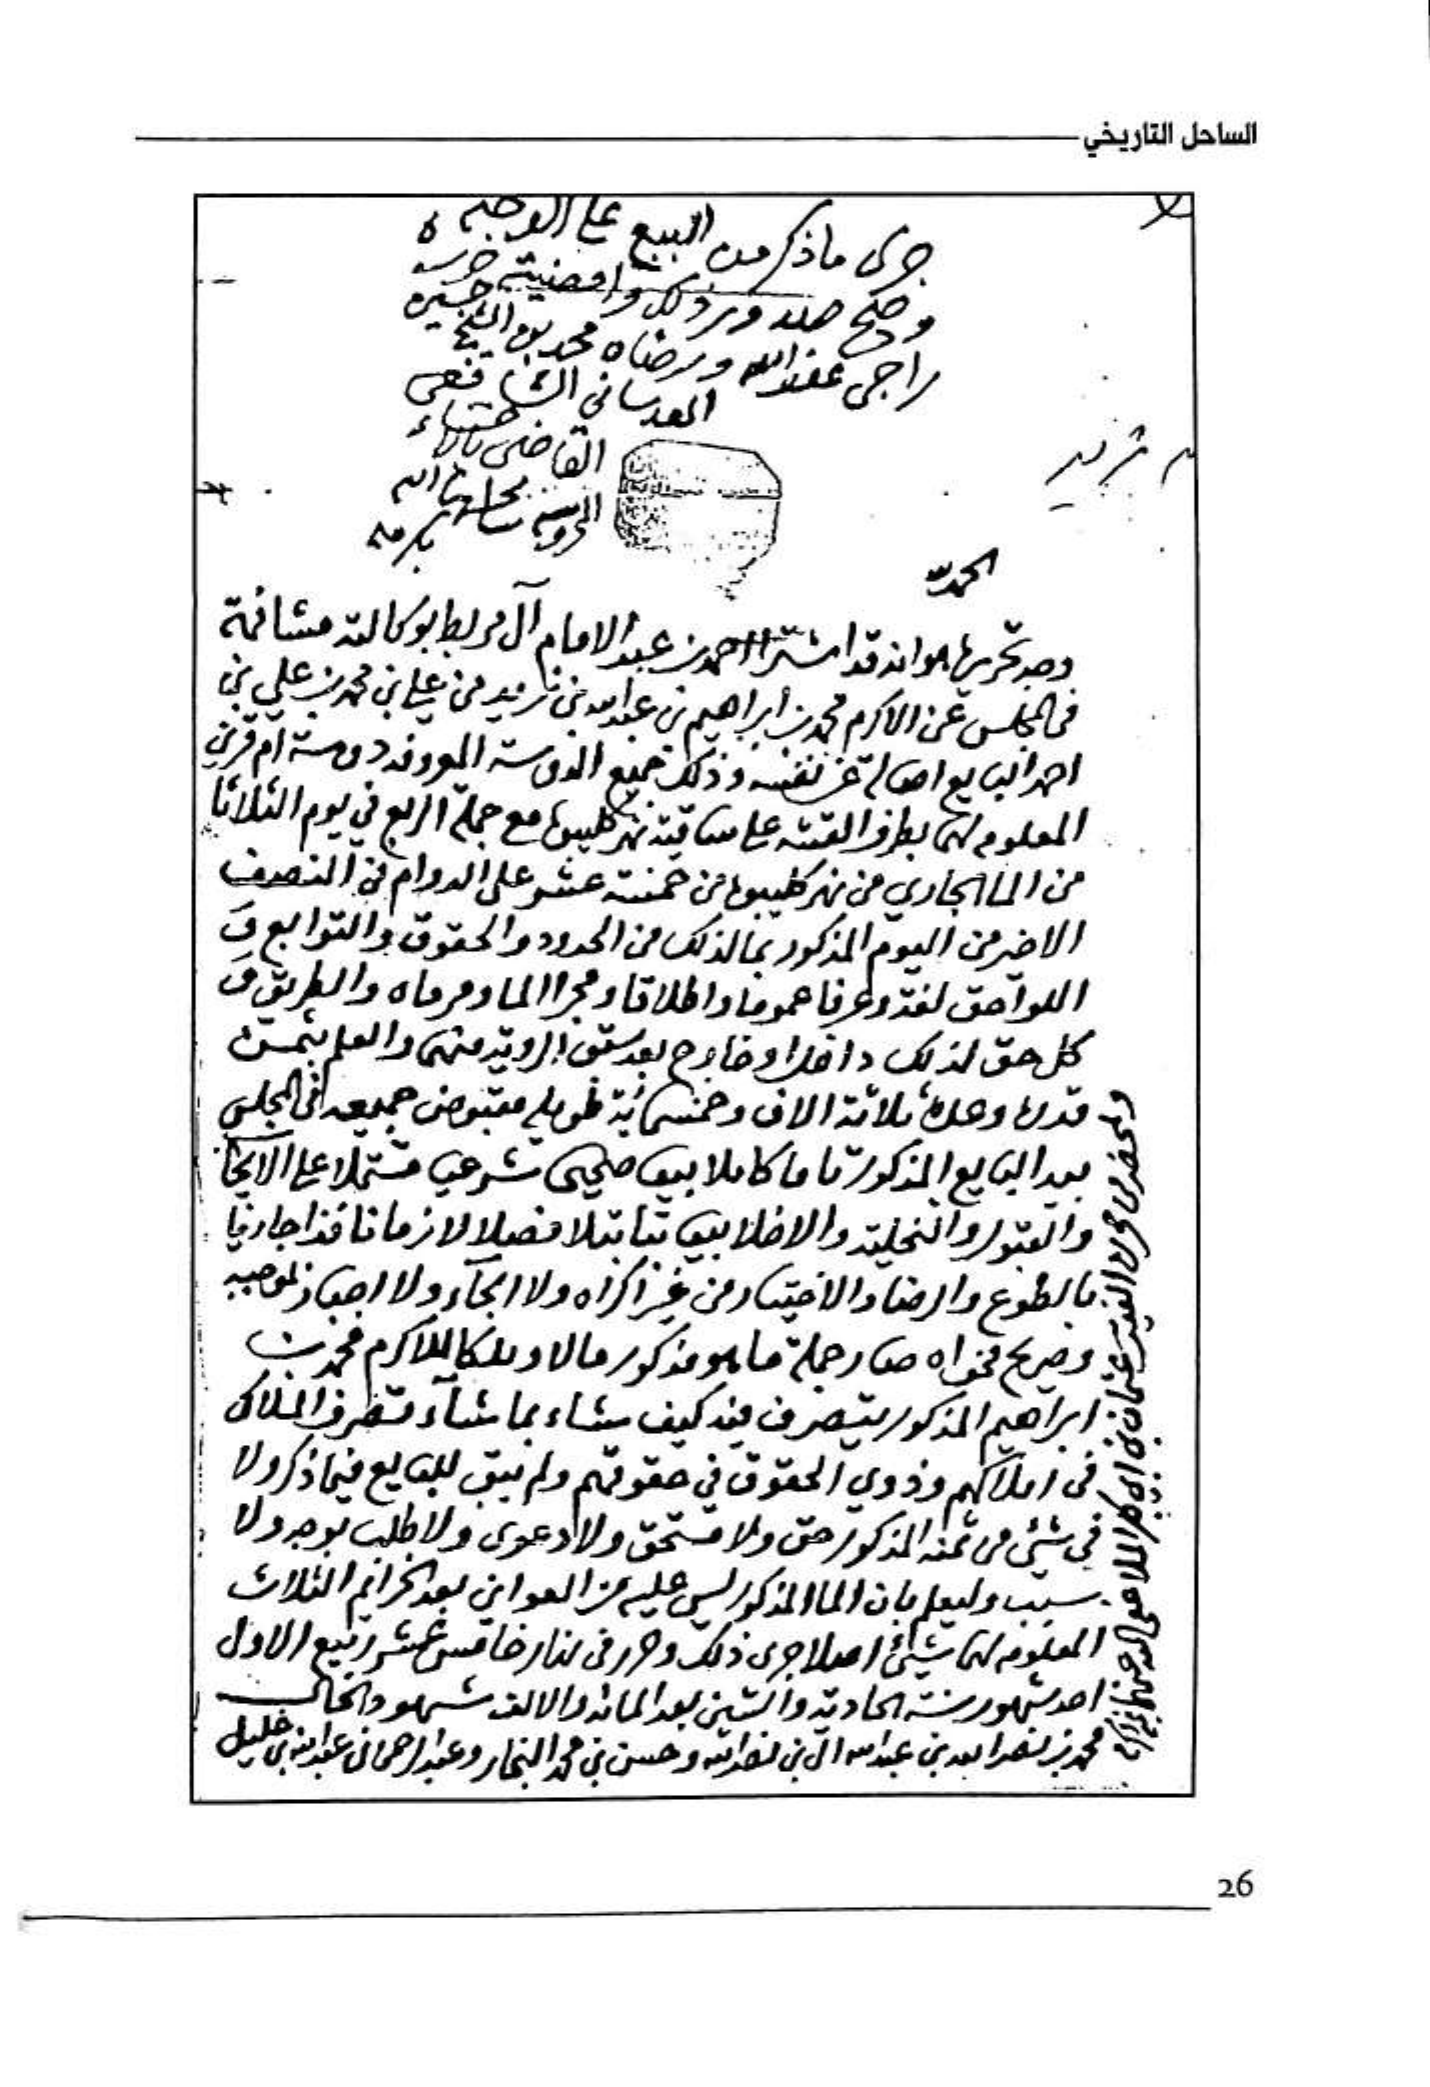 الساحل التاريخي
جرى ما ذكر من البيع على الوجه
وصح صدور ذلك وامضيته حرره
راجي عفو الله ورضاه محمد بن الشيخ حسين
العدساني الشافعي
القاضي بالاحساء
المحروسة حماها الله
بكرمه
الحمد لله
وجه تحريرها هو انه قد اشترا احمد بن عبد الامام آل مربط بوكالته مشافهة
في المجلس عن الاكرم محمد بن ابراهيم بن عبد الله بن من علي بن محمد بن علي بن
احمد البايع اصالة عن نفسه وذلك جميع الدوسة المعروفة دوسة ام قرين
المعلومة لهما بطرف على ساقية نهر مع جملة الربع في يوم الثلاثا
من الما الجاري من نهر من خمسة عشر على الدوام في النصف
الاخير من اليوم المذكور بما لذلك من الحدود والحقوق والتوابع و
اللواحق لغة وعرفا عموما واطلاقا ومجرا الما ومرماه والطريق و
كل حق لذلك داخل او خارج بعد سبق الروية منهما والعلم بثمن
قدره وعده ثلاثة الاف وخمسماية طويله مقبوض جميعه في المجلس
بيد البايع المذكور تاما كاملا بيعا صحيحا شرعيا مشتملا على الايجاب
والقبول والتخلية والاخلا بيعا بتا بتلا فصلا لازما نافذا جاريا
بالطوع والرضا والاختيار من غير اكراه ولا الجآء ولا اجبار بموجبه
وصريح فحواه صار جملة ما هو مذكور مالا وملكا للاكرم محمد بن
ابراهيم المذكور يتصرف فيه كيف شاء بما شآء تصرف الملاك
في املاكهم وذوي الحقوق في حقوقهم ولم يبق للبايع فيما ذكر ولا
في شئ من ثمنه المذكور حق ولا مستحق ولا دعوى ولا طلب بوجه ولا
سبب وليعلم بان الما المذكور ليس عليه من العواني بعد الثلاث
المعلومه لهما شئ اصلا جرى ذلك وحرر في نهار خامس عشر ربيع الاول
احد شهور سنة الحادية والستين بعد المائة والالف شهود الحال
محمد بن نصر الله بن عبد الله آل بن نصر الله وحسن بن محمد النجار وعبد الرحمن بن عبد الله بن خليل
26